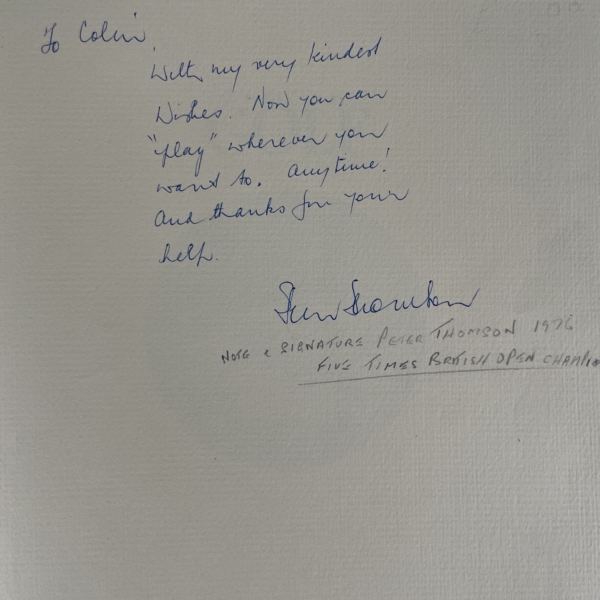 To Colin,
With my very kindest
Wishes. Now you can
"play" wherever you
want to. Anytime!
And thanks for your
help.
Peter Thomson
NOTE & SIGNATURE PETER THOMSON 1976
FIVE TIMES BRITISH OPEN CHAMPIO